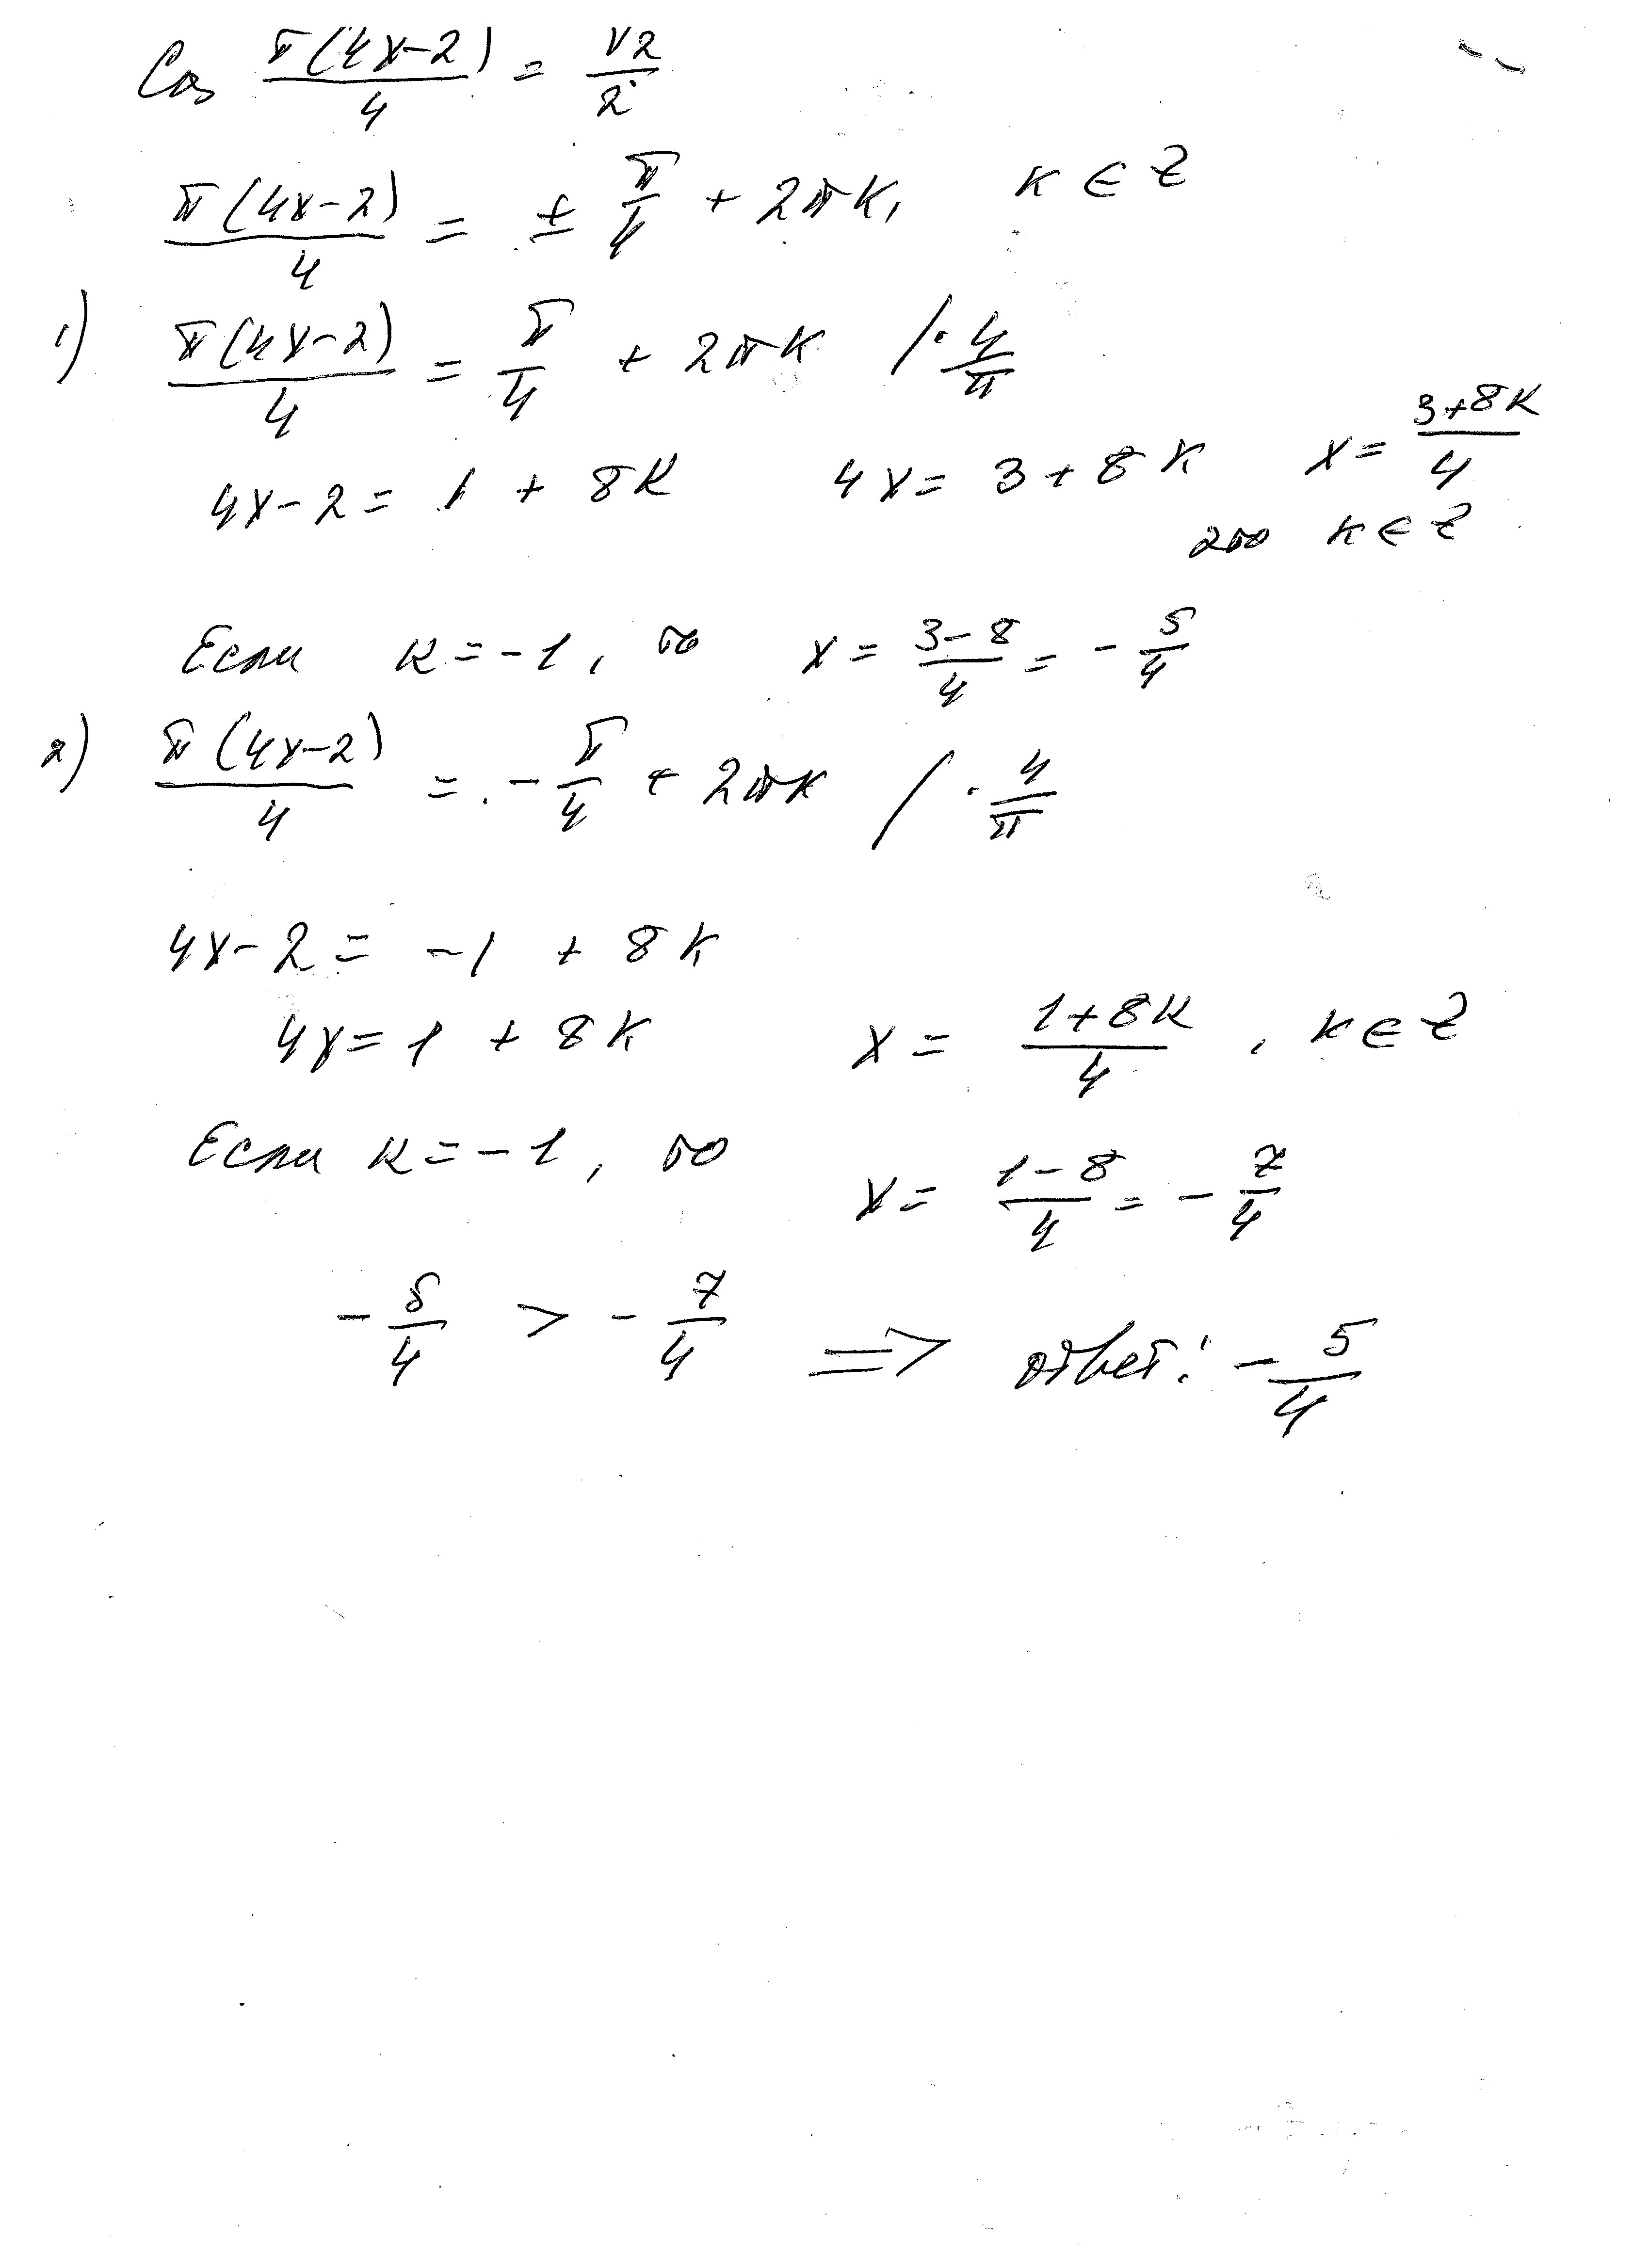 Cos π(4x-2)/4 = √2/2
π(4x-2)/4 = ± π/4 + 2πк, к ∈ Z
1) π(4x-2)/4 = π/4 + 2πк / · 4/π
4x-2 = 1 + 8к 4x = 3 + 8к x = 3+8к/4
где к ∈ Z
Если к = -1, то x = 3-8/4 = - 5/4
2) π(4x-2)/4 = - π/4 + 2πк / · 4/π
4x-2 = -1 + 8к
4x = 1 + 8к x = 1+8к/4, к ∈ Z
Если к = -1, то x = 1-8/4 = - 7/4
- 5/4 > - 7/4 => ответ: - 5/4